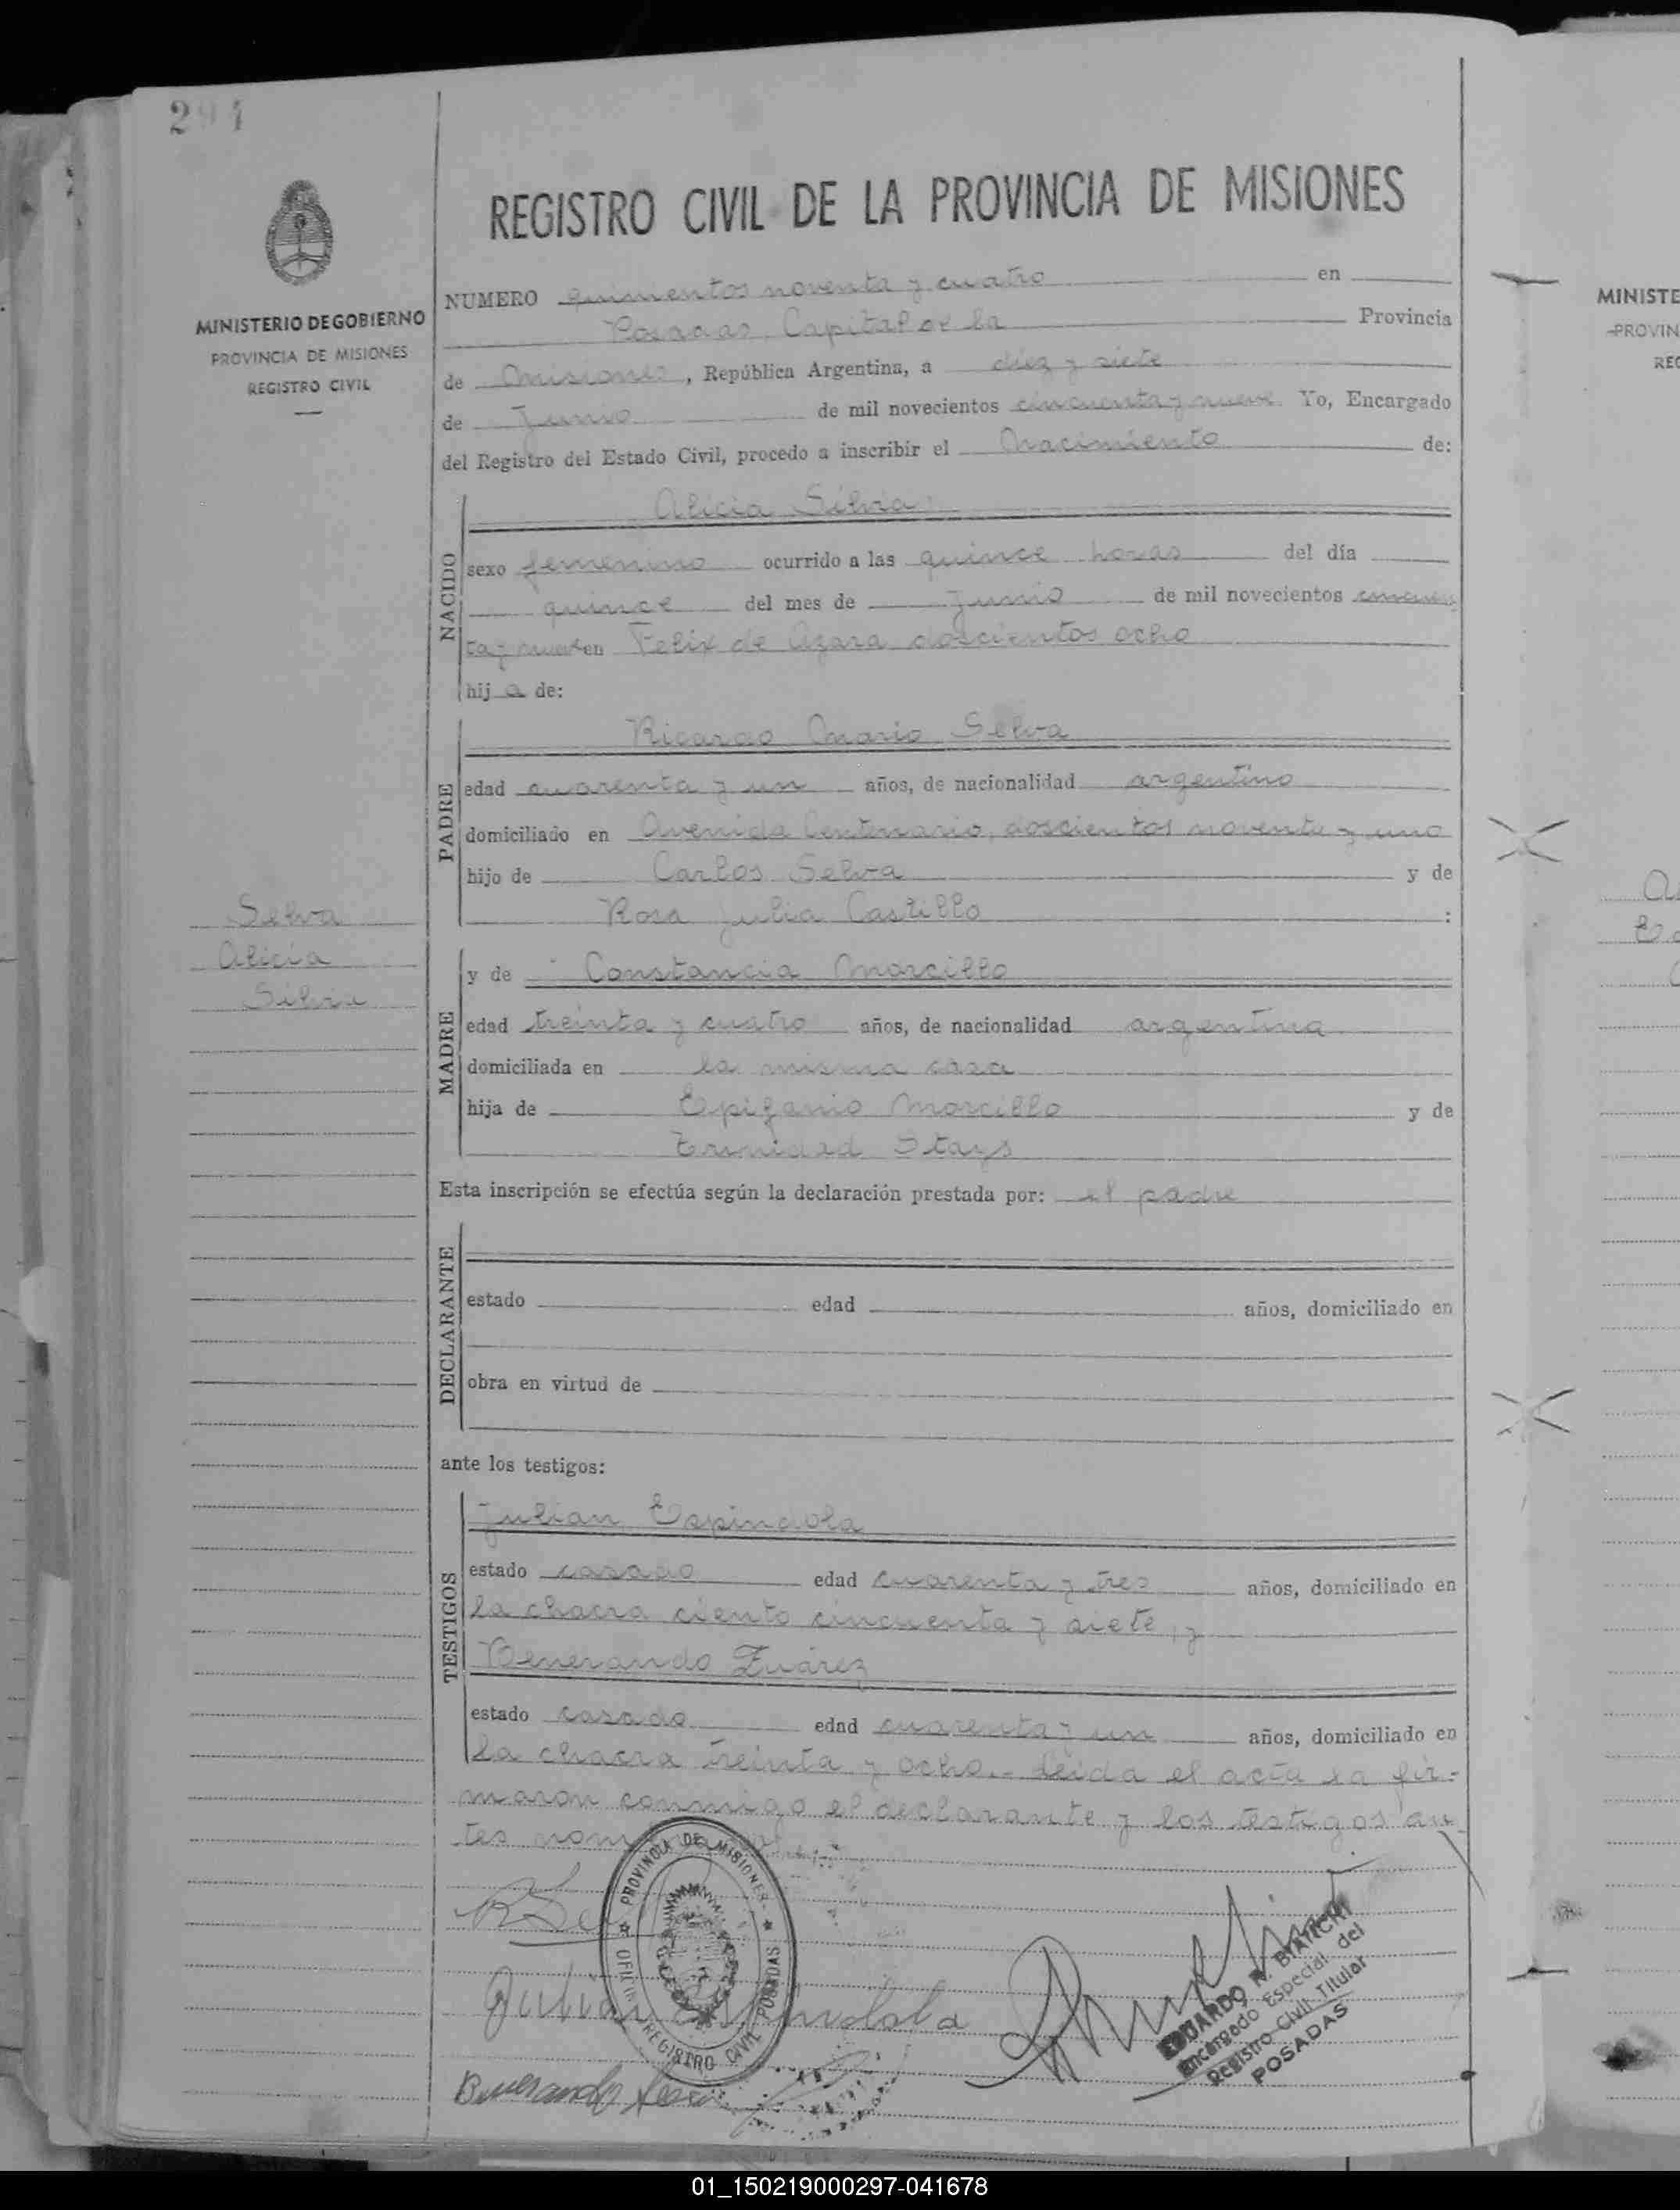 294
REGISTRO CIVIL DE LA PROVINCIA DE MISIONES
MINISTERIO DE GOBIERNO
PROVINCIA DE MISIONES
REGISTRO CIVIL
NUMERO quinientos noventa y cuatro en
Posadas, Capital de la Provincia
de Misiones, República Argentina, a diez y siete
de Junio de mil novecientos cincuenta y nueve. Yo, Encargado
del Registro del Estado Civil, procedo a inscribir el Nacimiento de:
NACIDO
Alicia Silvia
sexo femenino ocurrido a las quince horas del día
quince del mes de junio de mil novecientos cincuen
ta y nueve en Felix de Azara doscientos ocho
hij a de:
PADRE
Ricardo Mario Selva
edad cuarenta y un años, de nacionalidad argentino
domiciliado en Avenida Centenario, doscientos noventa y uno
hijo de Carlos Selva y de
Rosa Julia Castillo :
Selva
Alicia
Silvia
MADRE
y de Constancia Morcillo
edad treinta y cuatro años, de nacionalidad argentina
domiciliada en la misma casa
hija de Epifanio Morcillo y de
Trinidad Stays
Esta inscripción se efectúa según la declaración prestada por: el padre
DECLARANTE
estado edad años, domiciliado en
obra en virtud de
ante los testigos:
TESTIGOS
Julian Espindola
estado casado edad cuarenta y tres años, domiciliado en
la chacra ciento cincuenta y siete, y
Benerando Zuárez
estado casado edad cuarenta y un años, domiciliado en
la chacra treinta y ocho.- Leida el acta la fir-
maron conmigo el declarante y los testigos an
tes
PROVINCIA DE MISIONES
REGISTRO CIVIL POSADAS
Julián
EDUARDO R. BIANCHI
Encargado Especial del
Registro Civil Titular
POSADAS
Benerando
MINISTE
PROVIN
REG
01_150219000297-041678